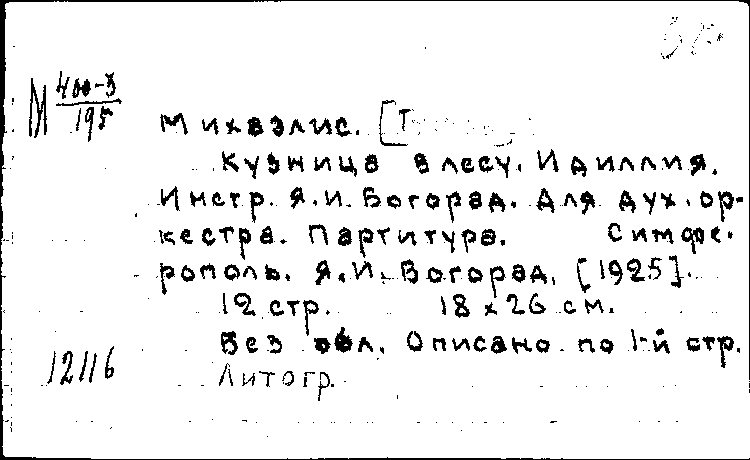 М 400-3
195
Михаэлис. [Т
Кузница в лесу. Идиллия.
Инстр. Я.И. Богорад. Для дух. ор-
кестра. Партитура. Симфе-
рополь. Я.И. Богорад, [1925].
12 стр. 18 x 26 см.
Без обл. Описано по 1-й стр.
12116 Литогр.